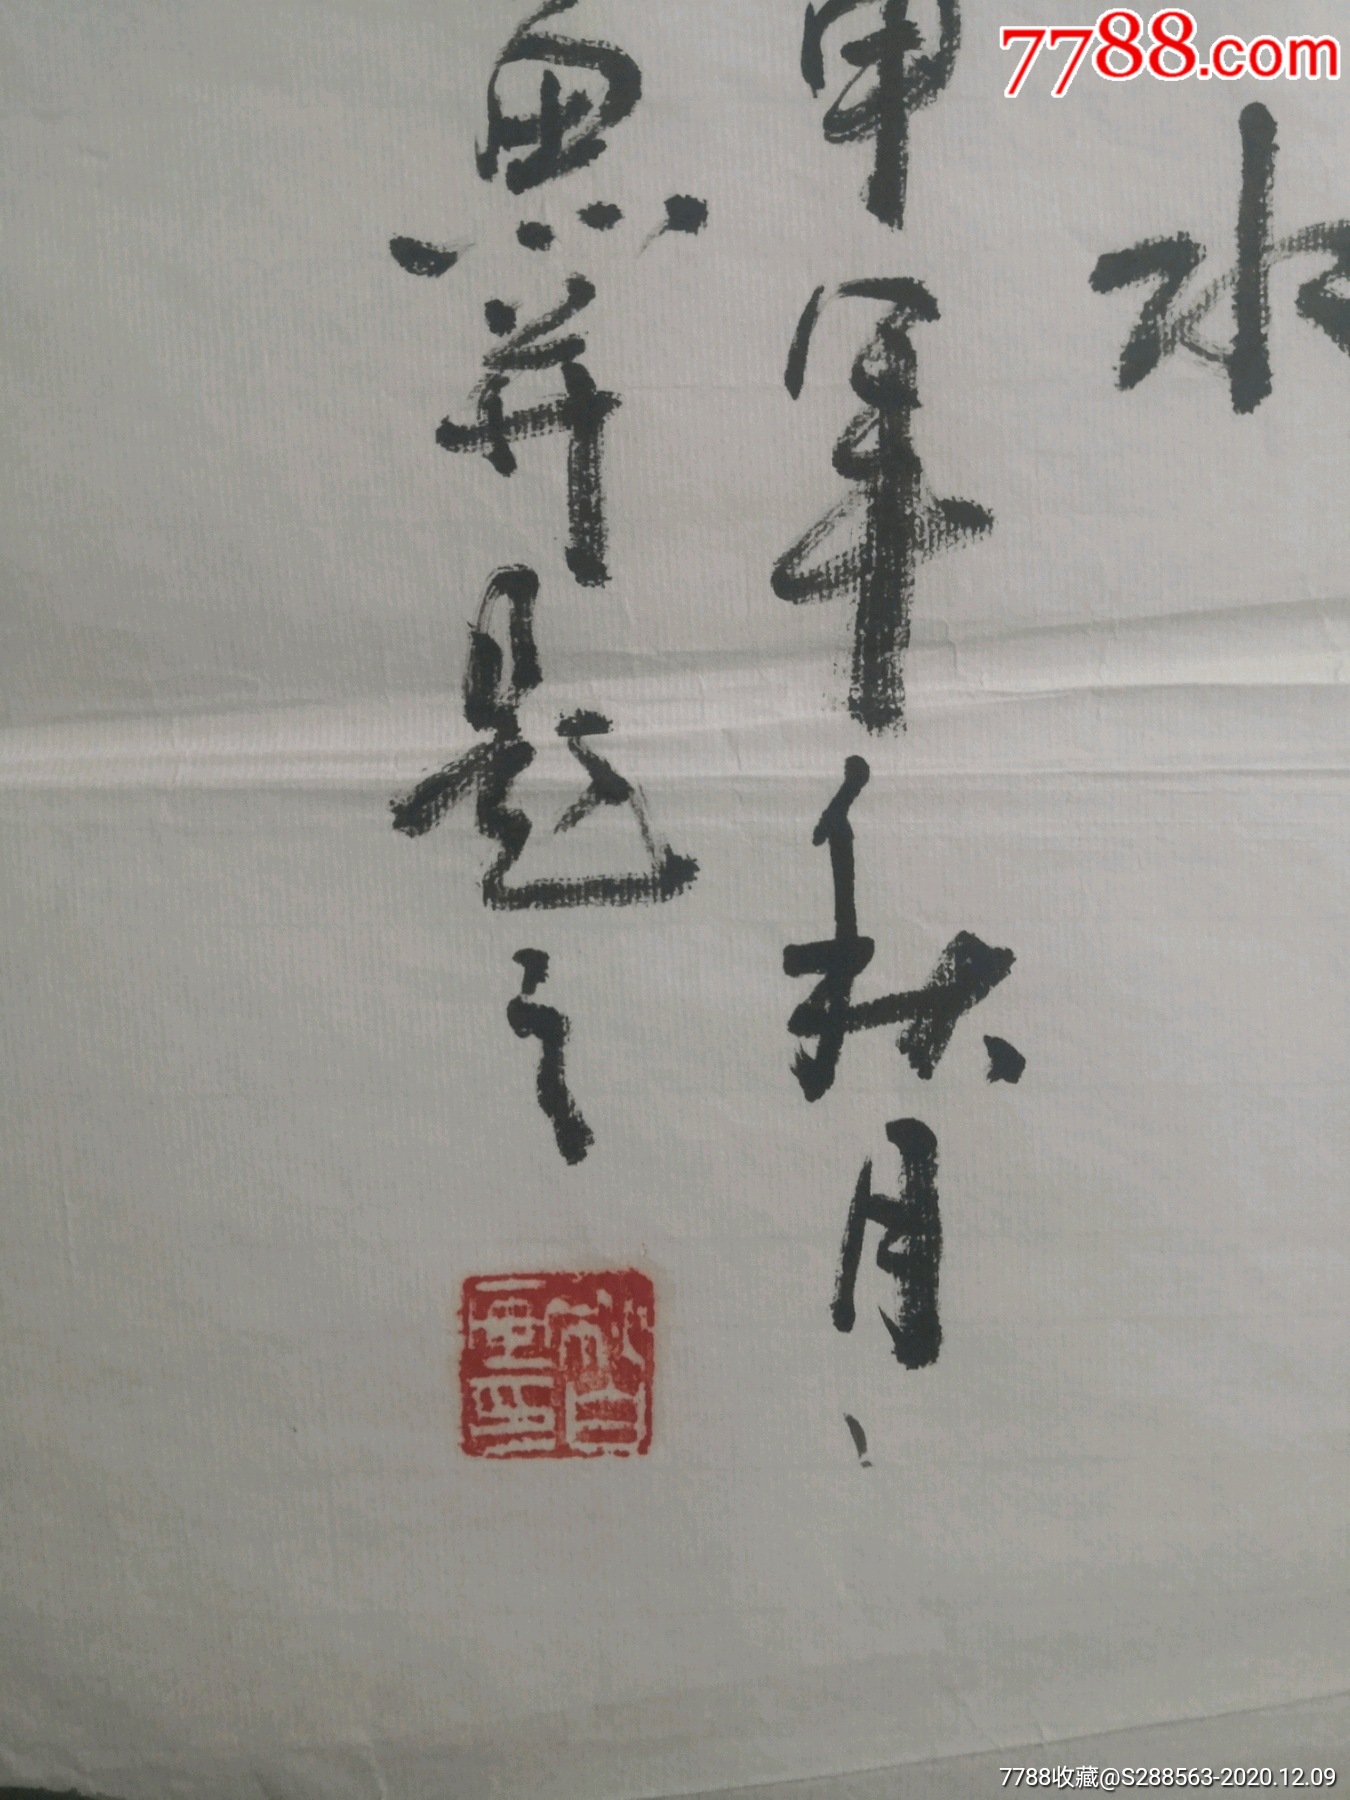 7788.com
水
申年秋月
魚并題之
7788收藏@S288563-2020.12.09